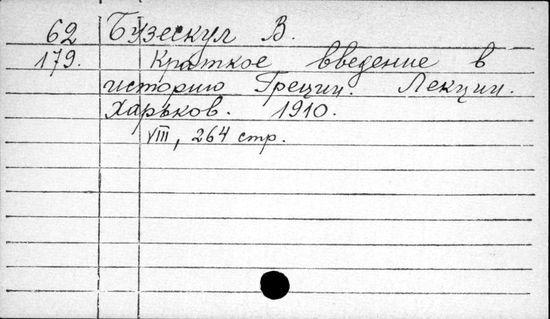 62 Бузескул В.
179. Краткое введение в
историю Греции. Лекции.
Харьков. 1910.
VIII, 264 стр.